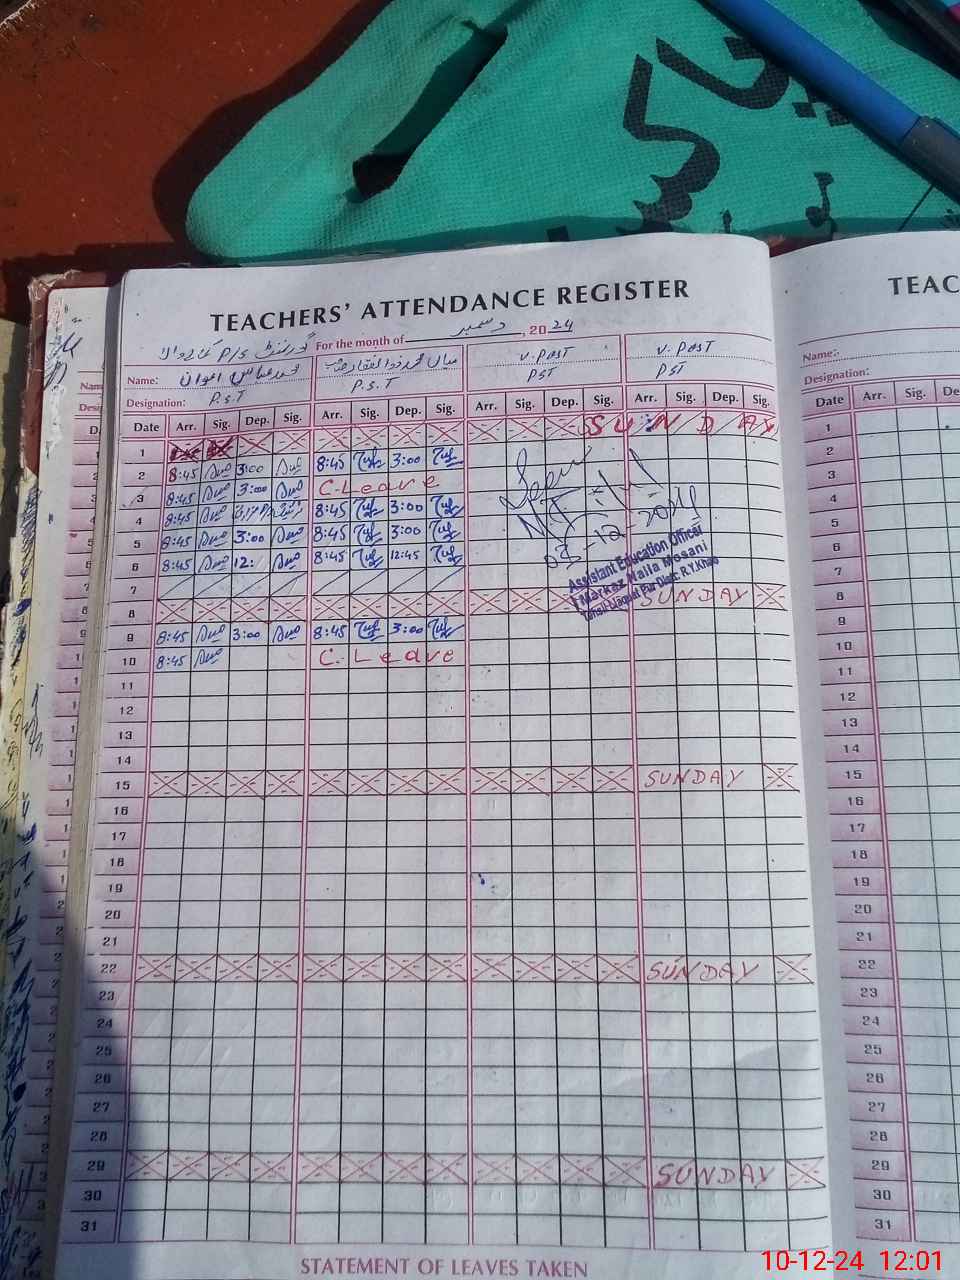 TEACHERS' ATTENDANCE REGISTER
TEAC
گورنمنٹ P/S
For the month of دسمبر, 2024
Name: محمد عباس اعوان میاں محمد ذوالفقار V. Post V. Post
Name:
Designation: P.S.T P.S.T PST PST
Designation:
Date Arr. Sig. Dep. Sig. Arr. Sig. Dep. Sig. Arr. Sig. Dep. Sig. Arr. Sig. Dep. Sig.
Date Arr. Sig. De
1 SUNDAY
2 8:45 3:00 8:45 3:00
3 8:45 3:00 C-Leave
4 8:45 8:45 3:00
5 8:45 3:00 8:45 3:00
6 8:45 12: 8:45 12:45
7
8 SUNDAY
9 8:45 3:00 8:45 3:00
10 8:45 C. Leave
03-12-2024
Assistant Education Officer
Markaz Walla Mosani
Tehsil Liaquat Pur Distt: R.Y.Khan
11
12
13
14
15 SUNDAY
16
17
18
19
20
21
22 SUNDAY
23
24
25
26
27
28
29 SUNDAY
30
31
1
2
3
4
5
6
7
8
9
10
11
12
13
14
15
16
17
18
19
20
21
22
23
24
25
26
27
28
29
30
31
STATEMENT OF LEAVES TAKEN
10-12-24 12:01